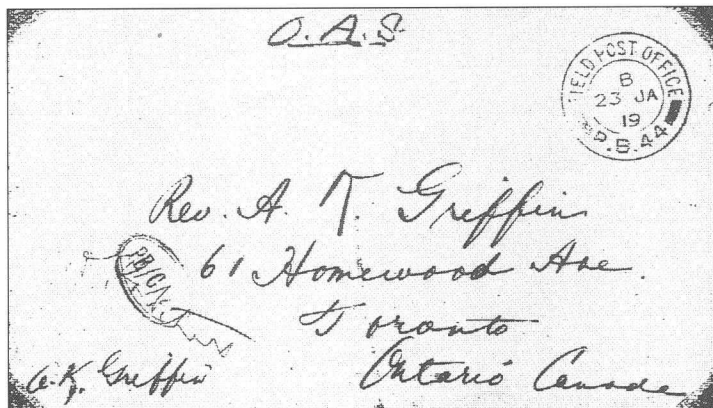 O.A.S
FIELD POST OFFICE
B
23 JA
19
P.B.44
Rev. A. T. Griffin
61 Homewood Ave.
Toronto
Ontario Canada
PB/C/
A.K. Griffin